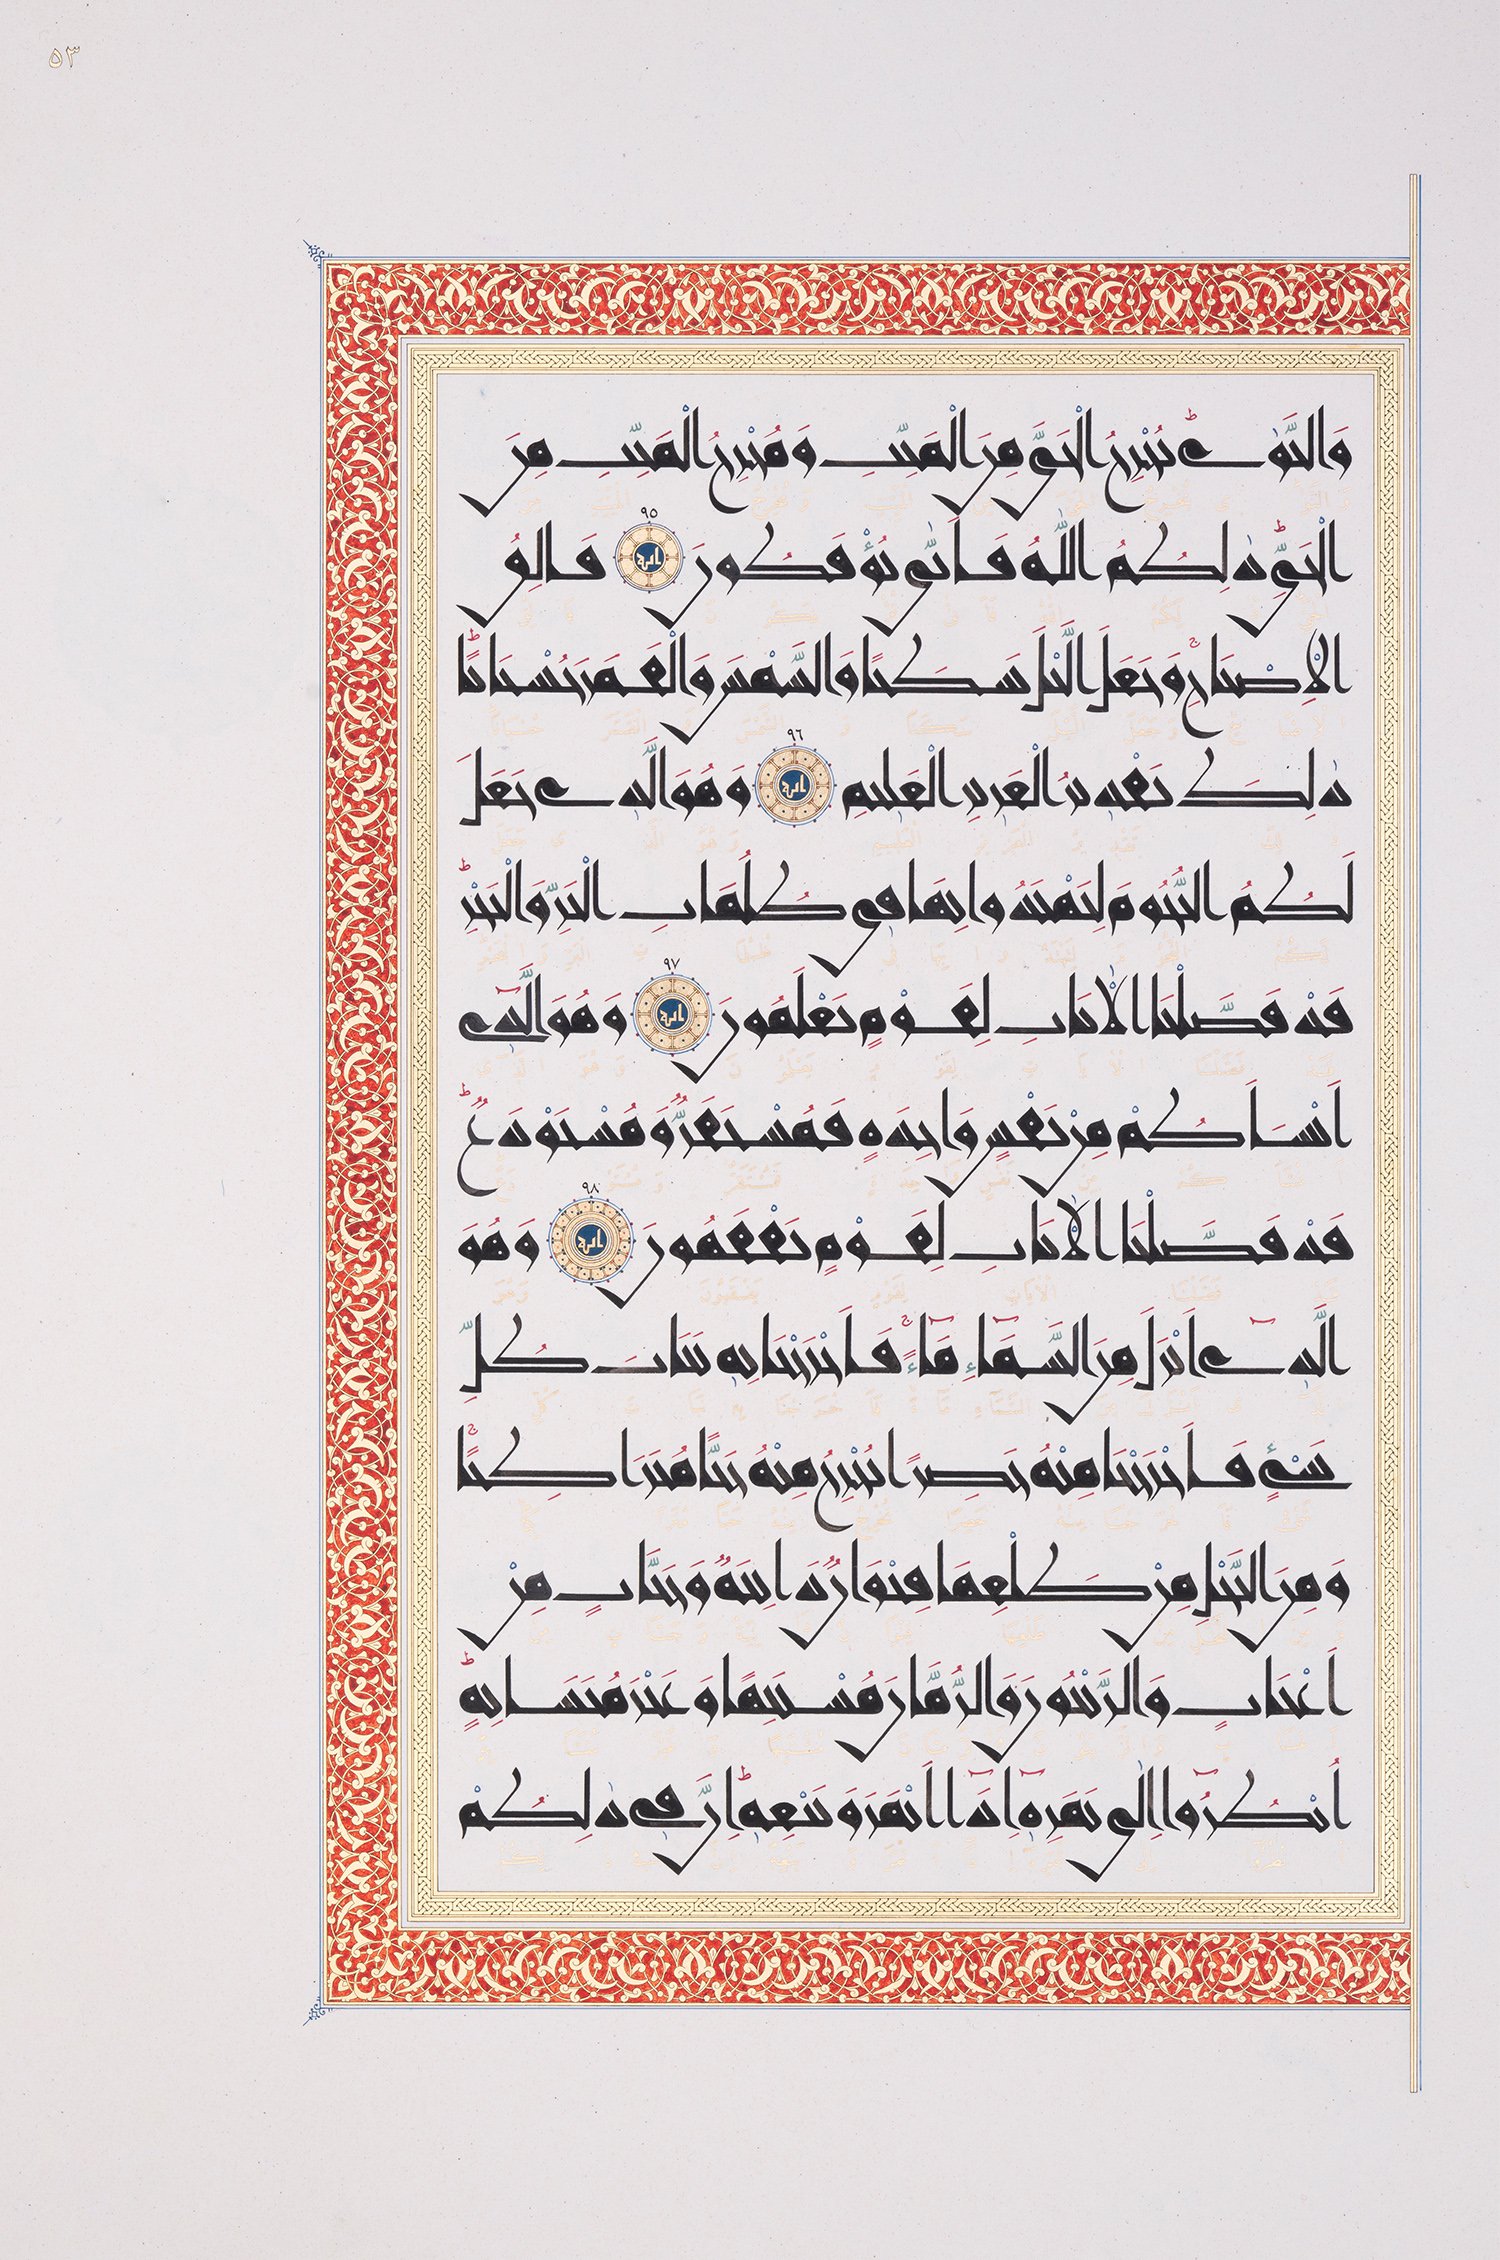 ٥٣
وَالنَّوَىٰ يُخْرِجُ الْحَيَّ مِنَ الْمَيِّتِ وَمُخْرِجُ الْمَيِّتِ مِنَ
الْحَيِّ ذَٰلِكُمُ اللَّهُ فَأَنَّىٰ تُؤْفَكُونَ ٩٥ آية فَالِقُ
الْإِصْبَاحِ وَجَعَلَ اللَّيْلَ سَكَنًا وَالشَّمْسَ وَالْقَمَرَ حُسْبَانًا
ذَٰلِكَ تَقْدِيرُ الْعَزِيزِ الْعَلِيمِ ٩٦ آية وَهُوَ الَّذِي جَعَلَ
لَكُمُ النُّجُومَ لِتَهْتَدُوا بِهَا فِي ظُلُمَاتِ الْبَرِّ وَالْبَحْرِ
قَدْ فَصَّلْنَا الْآيَاتِ لِقَوْمٍ يَعْلَمُونَ ٩٧ آية وَهُوَ الَّذِي
أَنْشَأَكُمْ مِنْ نَفْسٍ وَاحِدَةٍ فَمُسْتَقَرٌّ وَمُسْتَوْدَعٌ
قَدْ فَصَّلْنَا الْآيَاتِ لِقَوْمٍ يَفْقَهُونَ ٩٨ آية وَهُوَ
الَّذِي أَنْزَلَ مِنَ السَّمَاءِ مَاءً فَأَخْرَجْنَا بِهِ نَبَاتَ كُلِّ
شَيْءٍ فَأَخْرَجْنَا مِنْهُ خَضِرًا نُخْرِجُ مِنْهُ حَبًّا مُتَرَاكِبًا
وَمِنَ النَّخْلِ مِنْ طَلْعِهَا قِنْوَانٌ دَانِيَةٌ وَجَنَّاتٍ مِنْ
أَعْنَابٍ وَالزَّيْتُونَ وَالرُّمَّانَ مُشْتَبِهًا وَغَيْرَ مُتَشَابِهٍ
اُنْظُرُوا إِلَىٰ ثَمَرِهِ إِذَا أَثْمَرَ وَيَنْعِهِ إِنَّ فِي ذَٰلِكُمْ